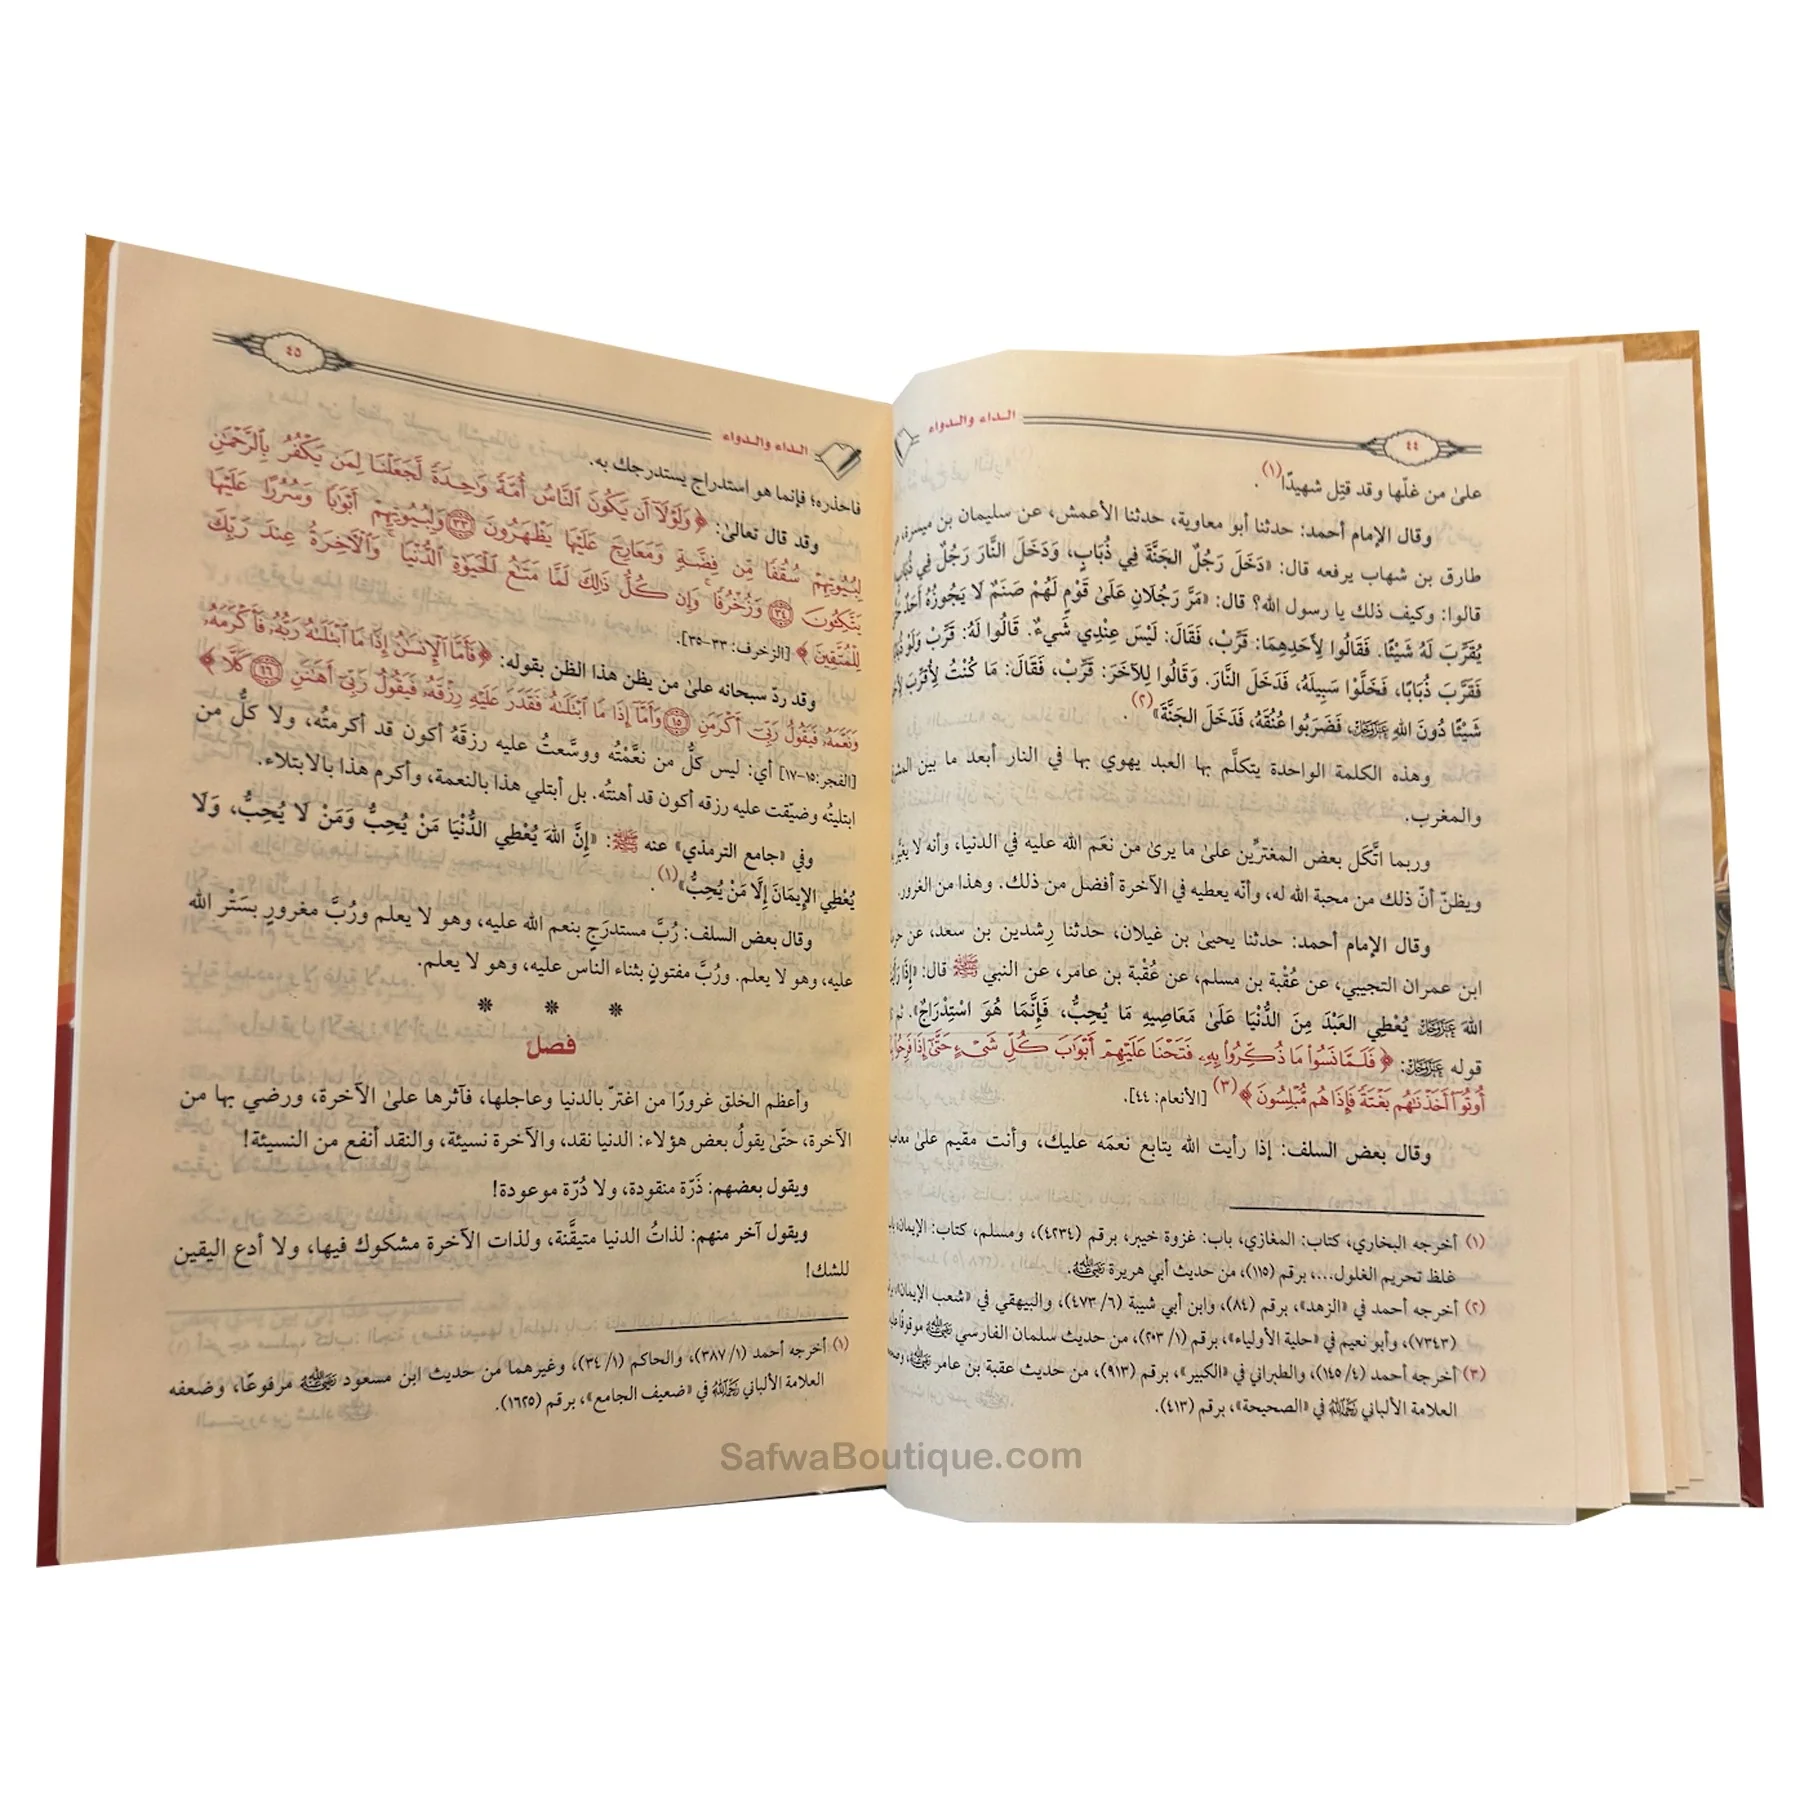 ٤٤
الـداء والـدواء
علىٰ من غلّها وقد قتِل شهيدًا(١).
وقال الإمام أحمد: حدثنا أبو معاوية، حدثنا الأعمش، عن سليمان بن ميسرة،
طارق بن شهاب يرفعه قال: «دَخَلَ رَجُلٌ الجَنَّةَ فِي ذُبَابٍ، وَدَخَلَ النَّارَ رَجُلٌ فِي ذُبَابٍ
قالوا: وكيف ذلك يا رسول الله؟ قال: «مَرَّ رَجُلَانِ عَلَىٰ قَوْمٍ لَهُمْ صَنَمٌ لَا يَجُوزُهُ أَحَدٌ
يُقَرِّبَ لَهُ شَيْئًا. فَقَالُوا لِأَحَدِهِمَا: قَرِّبْ، فَقَالَ: لَيْسَ عِنْدِي شَيءٌ. قَالُوا لَهُ: قَرِّبْ وَلَوْ
فَقَرَّبَ ذُبَابًا، فَخَلَّوْا سَبِيلَهُ، فَدَخَلَ النَّارَ. وَقَالُوا لِلآخَرَ: قَرِّبْ، فَقَالَ: مَا كُنْتُ لِأُقَرِّبَ
شَيْئًا دُونَ اللهِ عَزَّوَجَلَّ، فَضَرَبُوا عُنُقَهُ، فَدَخَلَ الجَنَّةَ»(٢).
وهذه الكلمة الواحدة يتكلَّم بها العبد يهوي بها في النار أبعد ما بين
والمغرب.
وربما اتَّكَل بعض المغترِّين علىٰ ما يرىٰ من نعَم الله عليه في الدنيا، وأنه لا
ويظنّ أنّ ذلك من محبة الله له، وأنّه يعطيه في الآخرة أفضل من ذلك. وهذا من الغرور.
وقال الإمام أحمد: حدثنا يحيىٰ بن غيلان، حدثنا رِشدين بن سعد، عن
ابن عمران التجيبي، عن عُقْبة بن مسلم، عن عُقْبة بن عامر، عن النبي ﷺ قال: «إِذَا
اللهَ عَزَّوَجَلَّ يُعْطِي العَبْدَ مِنَ الدُّنْيَا عَلَىٰ مَعَاصِيهِ مَا يُحِبُّ، فَإِنَّمَا هُوَ اسْتِدْرَاجٌ».
قوله عَزَّوَجَلَّ: ﴿فَلَمَّا نَسُوا۟ مَا ذُكِّرُوا۟ بِهِۦ فَتَحْنَا عَلَيْهِمْ أَبْوَٰبَ كُلِّ شَىْءٍ حَتَّىٰٓ إِذَا فَرِحُوا۟
أُوتُوٓا۟ أَخَذْنَٰهُم بَغْتَةً فَإِذَا هُم مُّبْلِسُونَ﴾(٣) [الأنعام: ٤٤].
وقال بعض السلف: إذا رأيت الله يتابع نعمَه عليك، وأنت مقيم علىٰ
(١) أخرجه البخاري، كتاب: المغازي، باب: غزوة خيبر، برقم (٤٢٣٤)، ومسلم، كتاب: الإيمان
غلظ تحريم الغلول...، برقم (١١٥)، من حديث أبي هريرة رَضِيَ اللَّهُ عَنْهُ.
(٢) أخرجه أحمد في «الزهد»، برقم (٨٤)، وابن أبي شيبة (٦/ ٤٧٣)، والبيهقي في «شعب الإيمان»
(٧٣٤٣)، وأبو نعيم في «حلية الأولياء»، برقم (١/ ٢٠٣)، من حديث سلمان الفارسي رَضِيَ اللَّهُ عَنْهُ موقوفًا
(٣) أخرجه أحمد (٤/ ١٤٥)، والطبراني في «الكبير»، برقم (٩١٣)، من حديث عقبة بن عامر رَضِيَ اللَّهُ عَنْهُ،
العلامة الألباني رَحِمَهُ اللَّهُ في «الصحيحة»، برقم (٤١٣).
الـداء والـدواء
٤٥
فاحذره؛ فإنما هو استدراج يستدرجك به.
وقد قال تعالىٰ: ﴿وَلَوْلَآ أَن يَكُونَ ٱلنَّاسُ أُمَّةً وَٰحِدَةً لَّجَعَلْنَا لِمَن يَكْفُرُ بِٱلرَّحْمَٰنِ
لِبُيُوتِهِمْ سُقُفًا مِّن فِضَّةٍ وَمَعَارِجَ عَلَيْهَا يَظْهَرُونَ ٣٣ وَلِبُيُوتِهِمْ أَبْوَٰبًا وَسُرُرًا عَلَيْهَا
يَتَّكِـُٔونَ ٣٤ وَزُخْرُفًا ۚ وَإِن كُلُّ ذَٰلِكَ لَمَّا مَتَٰعُ ٱلْحَيَوٰةِ ٱلدُّنْيَا ۚ وَٱلْءَاخِرَةُ عِندَ رَبِّكَ
لِلْمُتَّقِينَ﴾ [الزخرف: ٣٣-٣٥].
وقد ردّ سبحانه علىٰ من يظن هذا الظن بقوله: ﴿فَأَمَّا ٱلْإِنسَٰنُ إِذَا مَا ٱبْتَلَىٰهُ رَبُّهُۥ فَأَكْرَمَهُۥ
وَنَعَّمَهُۥ فَيَقُولُ رَبِّىٓ أَكْرَمَنِ ١٥ وَأَمَّآ إِذَا مَا ٱبْتَلَىٰهُ فَقَدَرَ عَلَيْهِ رِزْقَهُۥ فَيَقُولُ رَبِّىٓ أَهَٰنَنِ ١٦ كَلَّا﴾
[الفجر:١٥-١٧] أي: ليس كلُّ من نعَّمْتُه ووسَّعتُ عليه رزقَهُ أكون قد أكرمتُه، ولا كلُّ من
ابتليتُه وضيّقت عليه رزقه أكون قد أهنتُه. بل أبتلي هذا بالنعمة، وأكرم هذا بالابتلاء.
وفي «جامع الترمذي» عنه ﷺ: «إِنَّ اللهَ يُعْطِي الدُّنْيَا مَنْ يُحِبُّ وَمَنْ لَا يُحِبُّ، وَلَا
يُعْطِي الإِيمَانَ إِلَّا مَنْ يُحِبُّ»(١).
وقال بعض السلف: رُبَّ مستدرَجٍ بنعم الله عليه، وهو لا يعلم ورُبَّ مغرورٍ بسَتْر الله
عليه، وهو لا يعلم. ورُبَّ مفتونٍ بثناء الناس عليه، وهو لا يعلم.
* * *
فصل
وأعظم الخلق غرورًا من اغترّ بالدنيا وعاجلها، فآثرها علىٰ الآخرة، ورضي بها من
الآخرة، حتىٰ يقولُ بعض هؤلاء: الدنيا نقد، والآخرة نسيئة، والنقد أنفع من النسيئة!
ويقول بعضهم: ذَرّة منقودة، ولا دُرّة موعودة!
ويقول آخر منهم: لذاتُ الدنيا متيقَّنة، ولذات الآخرة مشكوك فيها، ولا أدع اليقين
للشك!
(١) أخرجه أحمد (١/ ٣٨٧)، والحاكم (١/ ٣٤)، وغيرهما من حديث ابن مسعود رَضِيَ اللَّهُ عَنْهُ مرفوعًا، وضعفه
العلامة الألباني رَحِمَهُ اللَّهُ في «ضعيف الجامع»، برقم (١٦٢٥).
SafwaBoutique.com